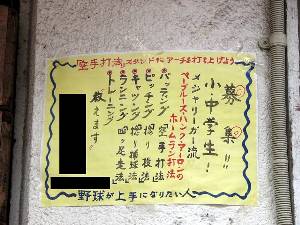 空手打法でスタンドにアーチを打ち上げよう
募集!!
小中学生!
メジャリーガー流
ベーブルース・ハンク・アーロンの
ホームラン打法
バッティング 空手打法
ピッチング 捻り投法
キャッチング 捻り捕球法
ランニング 四ッ足走法
トレーニング
教えます!!
野球が上手になりたい人